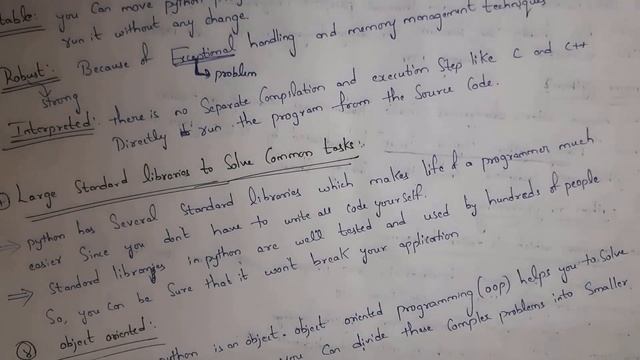 table: you can move python
run it without any change.
Robust: Because of Exceptional handling and memory management techniques
strong
problem
Interpreted: there is no Separate Compilation and execution Step like C and C++
Directly run the program from the Source Code.
Large Standard libraries to Solve Common tasks:
⇒ python has Several Standard libraries which makes life of a programmer much
easier Since you don't have to write all code yourself.
⇒ Standard libraries in python are well tested and used by hundreds of people.
So, you can be Sure that it won't break your application
⑧ object oriented:
python is an object. object oriented programming (oop) helps you to Solve
you can divide these Complex problems into Smaller